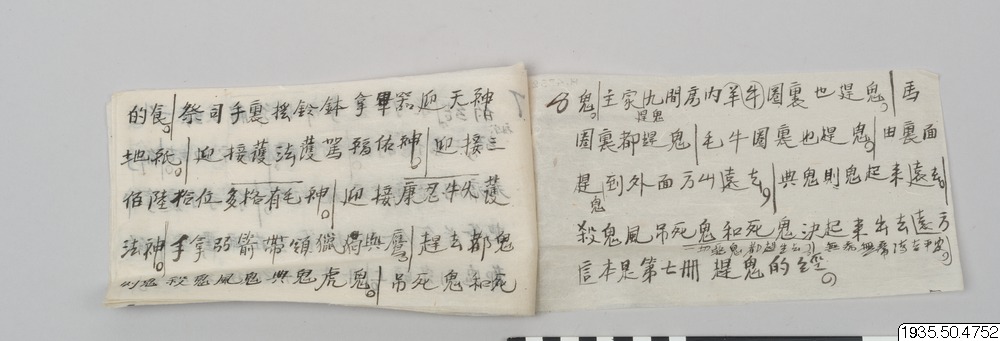 的食。祭司手裏摇鈴鉢拿軍器迎天神
地祇迎接護法護駕福佑神。迎接三
佰陸拾位多格有毛神。迎接康忍牛火護
法神。手拿弱箭帶領獵與鷹。趕去都鬼
風鬼典鬼虎鬼。吊死鬼和死
鬼主家九間房内羊牛圈裏也趕鬼。馬
趕鬼
圈裏都趕鬼毛牛圈裏也趕鬼。由裏面
趕到外面万山遠去。典鬼則鬼起来遠去。
鬼
殺鬼風吊死鬼和死鬼決起来出去遠方
這本是第七册趕鬼的經。
1935.50.4752